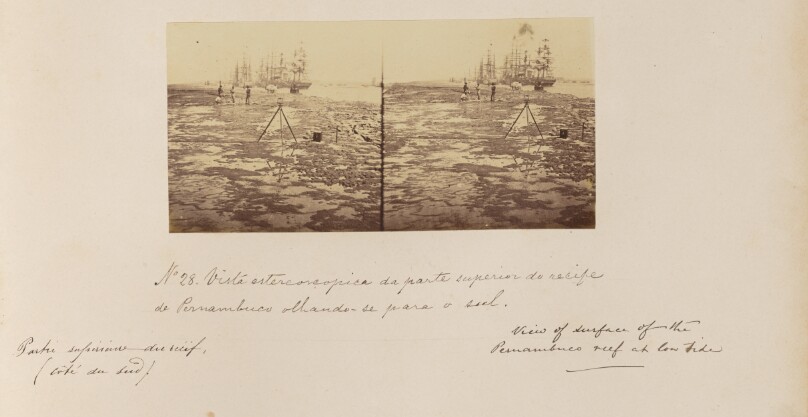 Nº 28. Vista estereoscopica da parte superior do recife
de Pernambuco olhando-se para o sul.
Partie supérieure du récif,
(côté du sud).
View of surface of the
Pernambuco reef at low tide